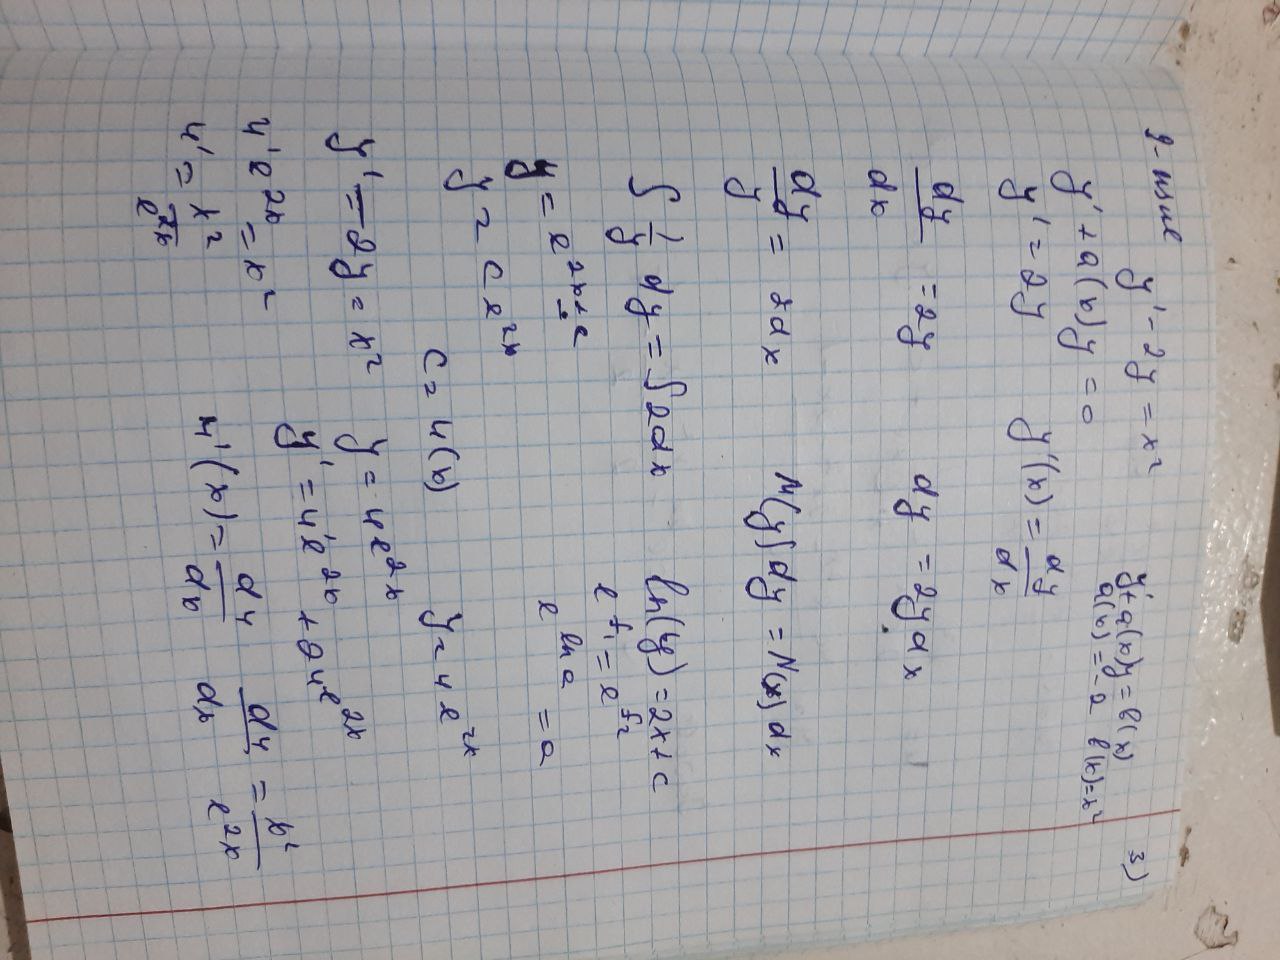 y' - 2y = x²
y' + a(x)y = b(x)
3)
a(x) = -2 b(x) = x²
y' + a(x)y = 0
y' = 2y y'(x) = dy/dx
dy/dx = 2y dy = 2ydx
dy/y = 2dx M(y)dy = N(x)dx
∫ 1/y dy = ∫2dx ln(y) = 2x + c
e^f₁ = e^f₂
y = e^2x+c
e^ln a = a
y = ce^2x
c = u(x) y = ue^2x
y' - 2y = x² y = ue^2x
y' = u'e^2x + 2ue^2x
u'e^2x = x²
u' = x²/e^2x u'(x) = du/dx du/dx = x²/e^2x